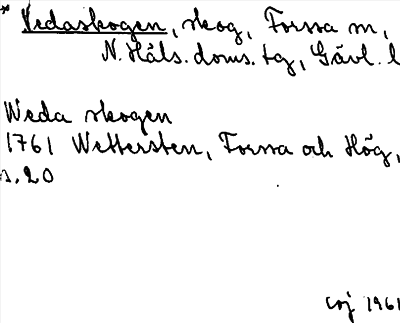 * Vedaskogen, skog, Forssa sn,
N. Häls. doms. tg, Gävl. l
Weda skogen
1761 Wettersten, Forssa och Hög,
s. 20
1961